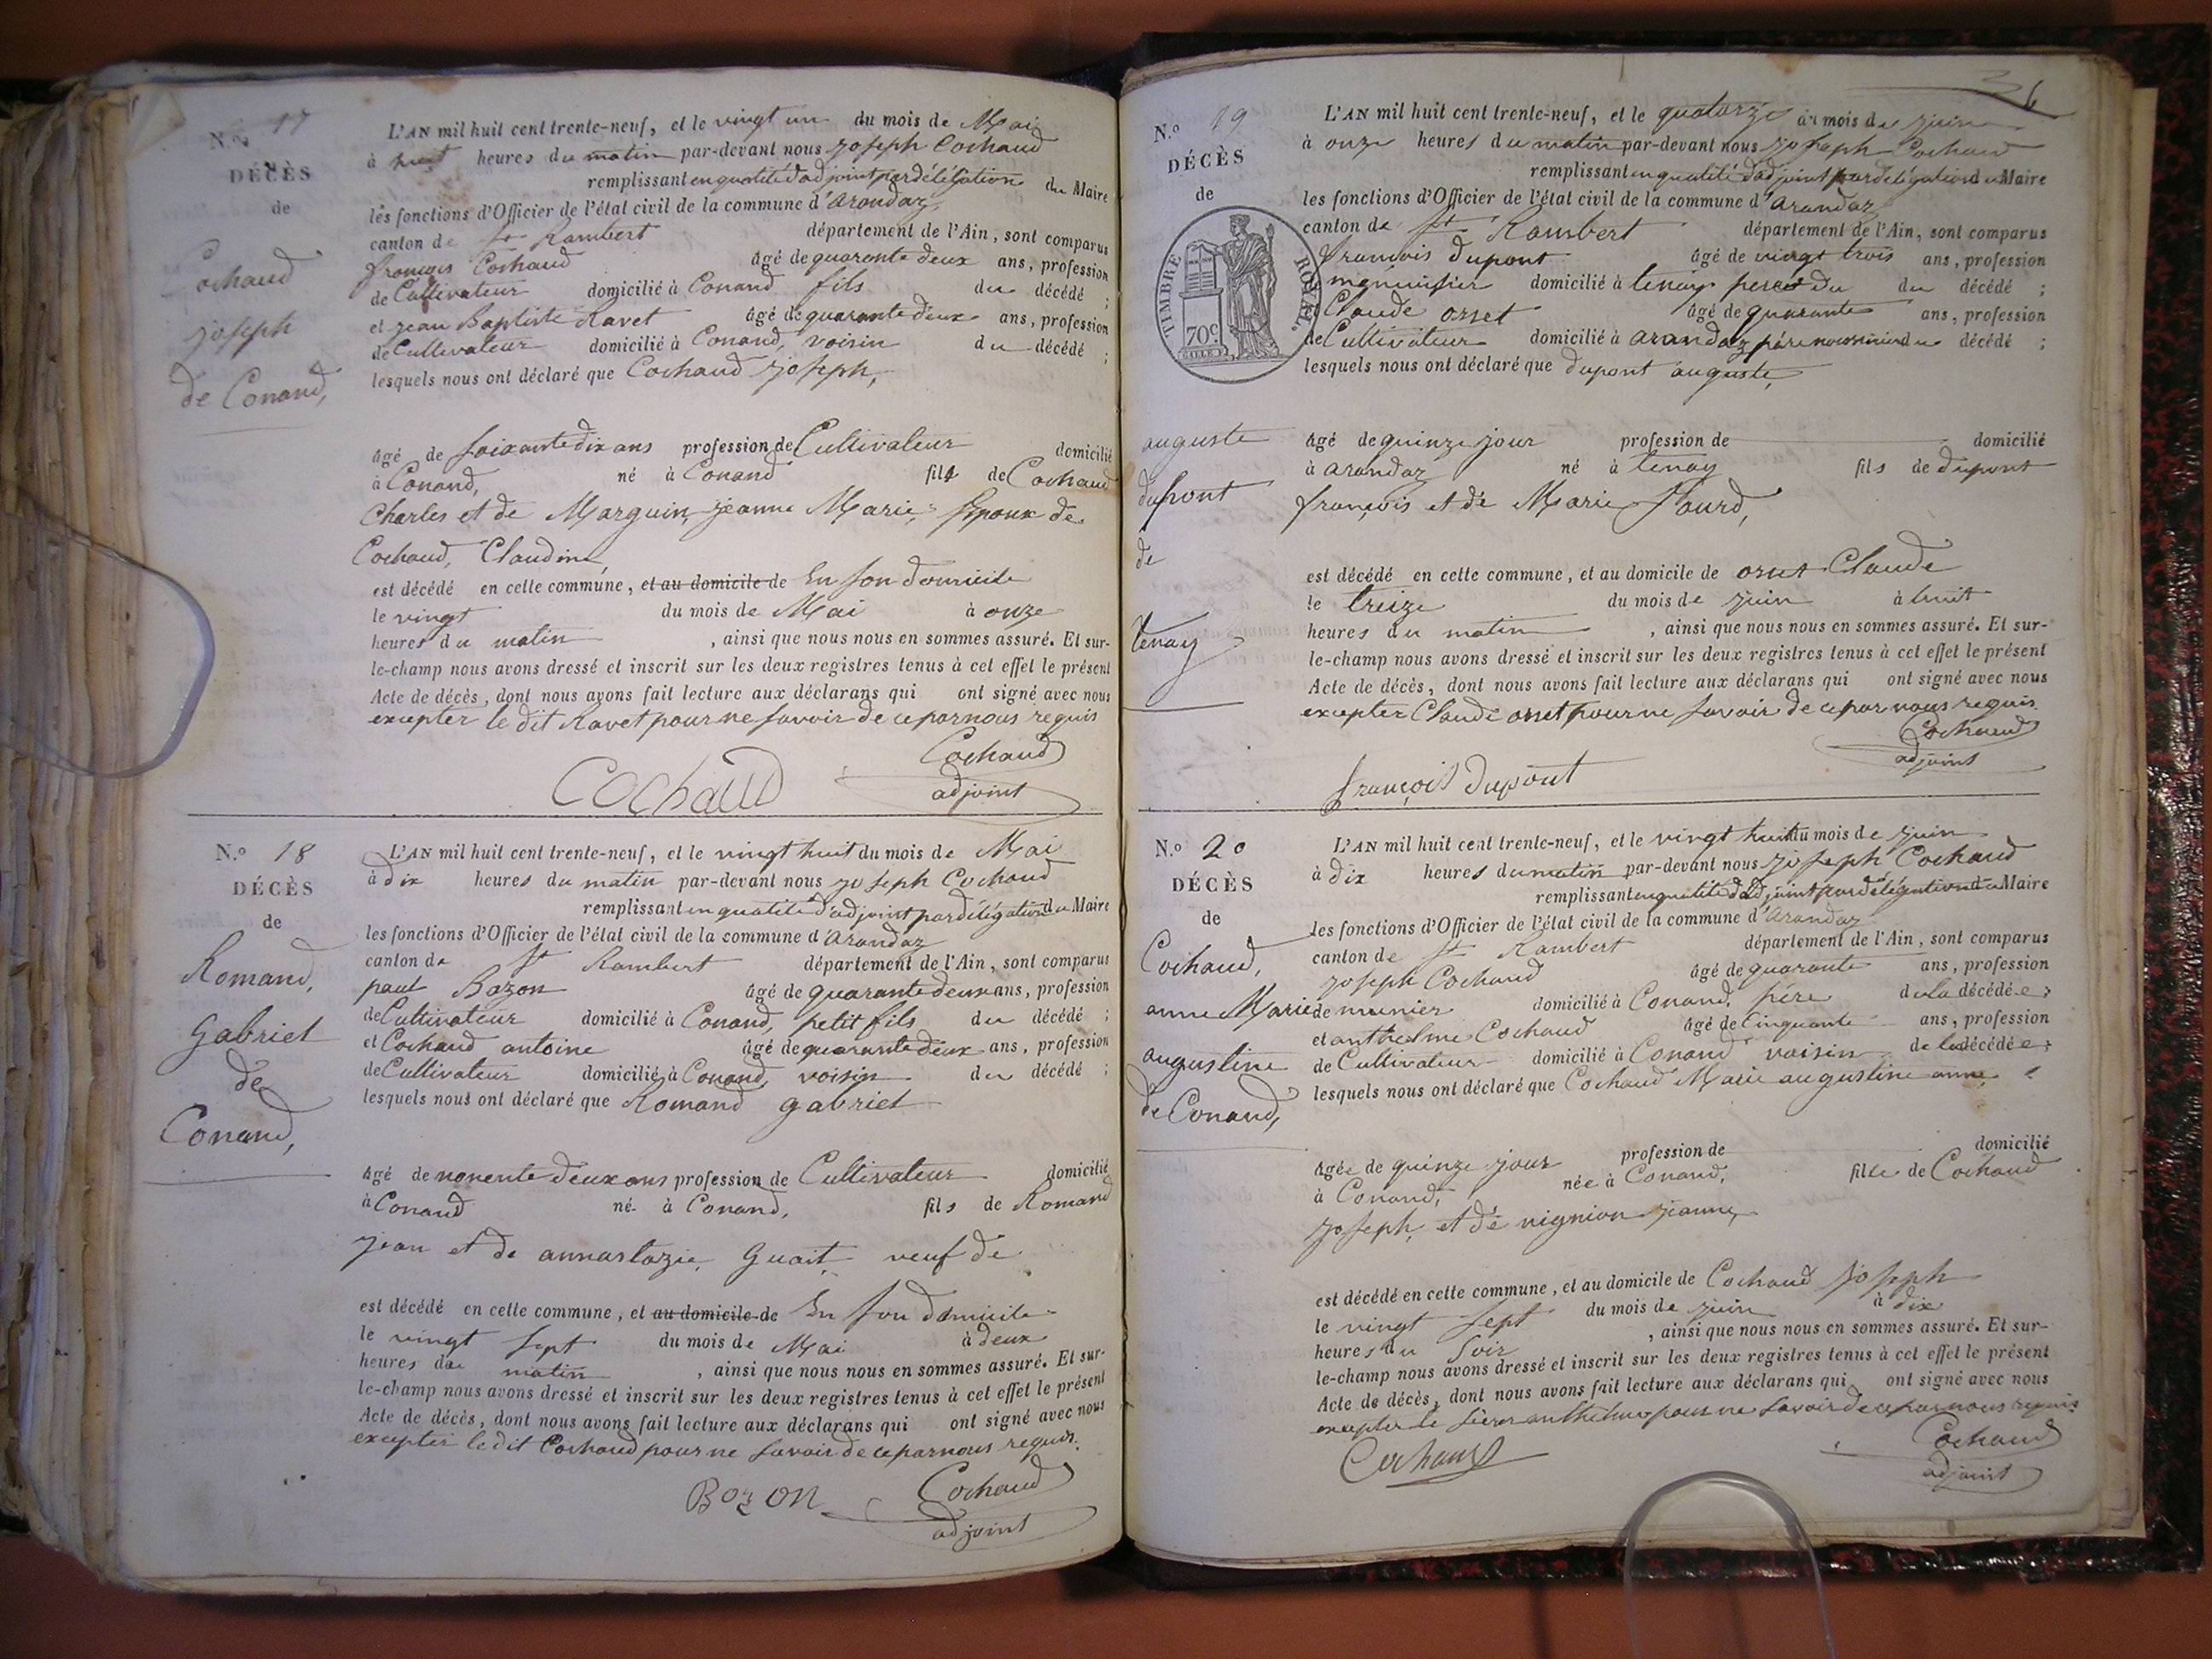 N.º 17
DÉCÈS
de
Cochaud
joseph
de Conand,
L'AN mil huit cent trente-neuf, et le vingt un du mois de Mai
à heures du matin par-devant nous joseph Cochaud
remplissant en qualité d'adjoint par délégation du Maire
les fonctions d'Officier de l'état civil de la commune d'arandaz,
canton de St Rambert département de l'Ain, sont comparus
françois Cochaud âgé de quarante deux ans, profession
de Cultivateur domicilié à Conand fils du décédé ;
et jean Baptiste Ravet âgé de quarante deux ans, profession
de Cultivateur domicilié à Conand, voisin du décédé ;
lesquels nous ont déclaré que Cochaud joseph,
âgé de soixante dix ans profession de Cultivateur domicilié
à Conand, né à Conand fils de Cochaud
Charles et de Marguin, jeanne Marie, Epoux de
Cochaud, Claudine,
est décédé en cette commune, et au domicile de En son domicile
le vingt du mois de Mai à onze
heures du matin , ainsi que nous nous en sommes assuré. Et sur-
le-champ nous avons dressé et inscrit sur les deux registres tenus à cet effet le présent
Acte de décès, dont nous avons fait lecture aux déclarans qui ont signé avec nous
excepter le dit Ravet pour ne savoir de ce par nous requis
Cochaud
Cochaud
adjoint
N.º 18
DÉCÈS
de
Romand,
Gabriel
de
Conand,
L'AN mil huit cent trente-neuf, et le vingt huit du mois de Mai
à dix heures du matin par-devant nous joseph Cochaud
remplissant en qualité d'adjoint par délégation du Maire
les fonctions d'Officier de l'état civil de la commune d'arandaz
canton de St Rambert département de l'Ain, sont comparus
paul Bozon âgé de quarante deux ans, profession
de Cultivateur domicilié à Conand, petit fils du décédé ;
et Cochaud antoine âgé de quarante deux ans, profession
de Cultivateur domicilié à Conand, voisin du décédé ;
lesquels nous ont déclaré que Romand gabriel
âgé de nonente deux ans profession de Cultivateur domicilié
à Conand né à Conand, fils de Romand
jean et de annastazie, Guait, veuf de
est décédé en cette commune, et au domicile de En son domicile
le vingt sept du mois de Mai à deux
heures du matin , ainsi que nous nous en sommes assuré. Et sur-
le-champ nous avons dressé et inscrit sur les deux registres tenus à cet effet le présent
Acte de décès, dont nous avons fait lecture aux déclarans qui ont signé avec nous
excepter le dit Cochaud pour ne savoir de ce par nous requis.
Bozon
Cochaud
adjoint
6
N.º 19
DÉCÈS
de
TIMBRE ROYAL.
70c
auguste
dupont
de
tenay
L'AN mil huit cent trente-neuf, et le quatorze du mois de juin
à onze heures du matin par-devant nous joseph Cochaud
remplissant en qualité d'adjoint par délégation du Maire
les fonctions d'Officier de l'état civil de la commune d'arandaz
canton de St Rambert département de l'Ain, sont comparus
françois dupont âgé de vingt trois ans, profession
de menuisier domicilié à tenay du décédé ;
et Claude orset âgé de quarante ans, profession
de Cultivateur domicilié à arandaz père nourricier du décédé ;
lesquels nous ont déclaré que dupont auguste,
âgé de quinze jour profession de domicilié
à arandaz né à tenay fils de dupont
françois et de Marie
est décédé en cette commune, et au domicile de orset Claude
le treize du mois de juin à huit
heures du matin , ainsi que nous nous en sommes assuré. Et sur-
le-champ nous avons dressé et inscrit sur les deux registres tenus à cet effet le présent
Acte de décès, dont nous avons fait lecture aux déclarans qui ont signé avec nous
excepter Claude orset pour ne savoir de ce par nous requis.
Cochaud
adjoint
françois Dupont
N.º 20
DÉCÈS
de
Cochaud,
anne Marie
augustine
de Conand,
L'AN mil huit cent trente-neuf, et le vingt huit du mois de juin
à dix heures du matin par-devant nous joseph Cochaud
remplissant en qualité d'adjoint par délégation du Maire
les fonctions d'Officier de l'état civil de la commune d'arandaz
canton de St Rambert département de l'Ain, sont comparus
joseph Cochaud âgé de quarante ans, profession
de munier domicilié à Conand, père de la décédée ;
et anthelme Cochaud âgé de Cinquante ans, profession
de Cultivateur domicilié à Conand voisin de la décédée ;
lesquels nous ont déclaré que Cochaud Marie augustine anne
âgée de quinze jour profession de domicilié
à Conand, née à Conand, fille de Cochaud
joseph, et de vignion jeanne,
est décédé en cette commune, et au domicile de Cochaud joseph
le vingt sept du mois de juin à dix
heures du soir , ainsi que nous nous en sommes assuré. Et sur-
le-champ nous avons dressé et inscrit sur les deux registres tenus à cet effet le présent
Acte de décès, dont nous avons fait lecture aux déclarans qui ont signé avec nous
excepter le anthelme pour ne savoir de ce par nous requis
Cochaud
Cochaud
adjoint